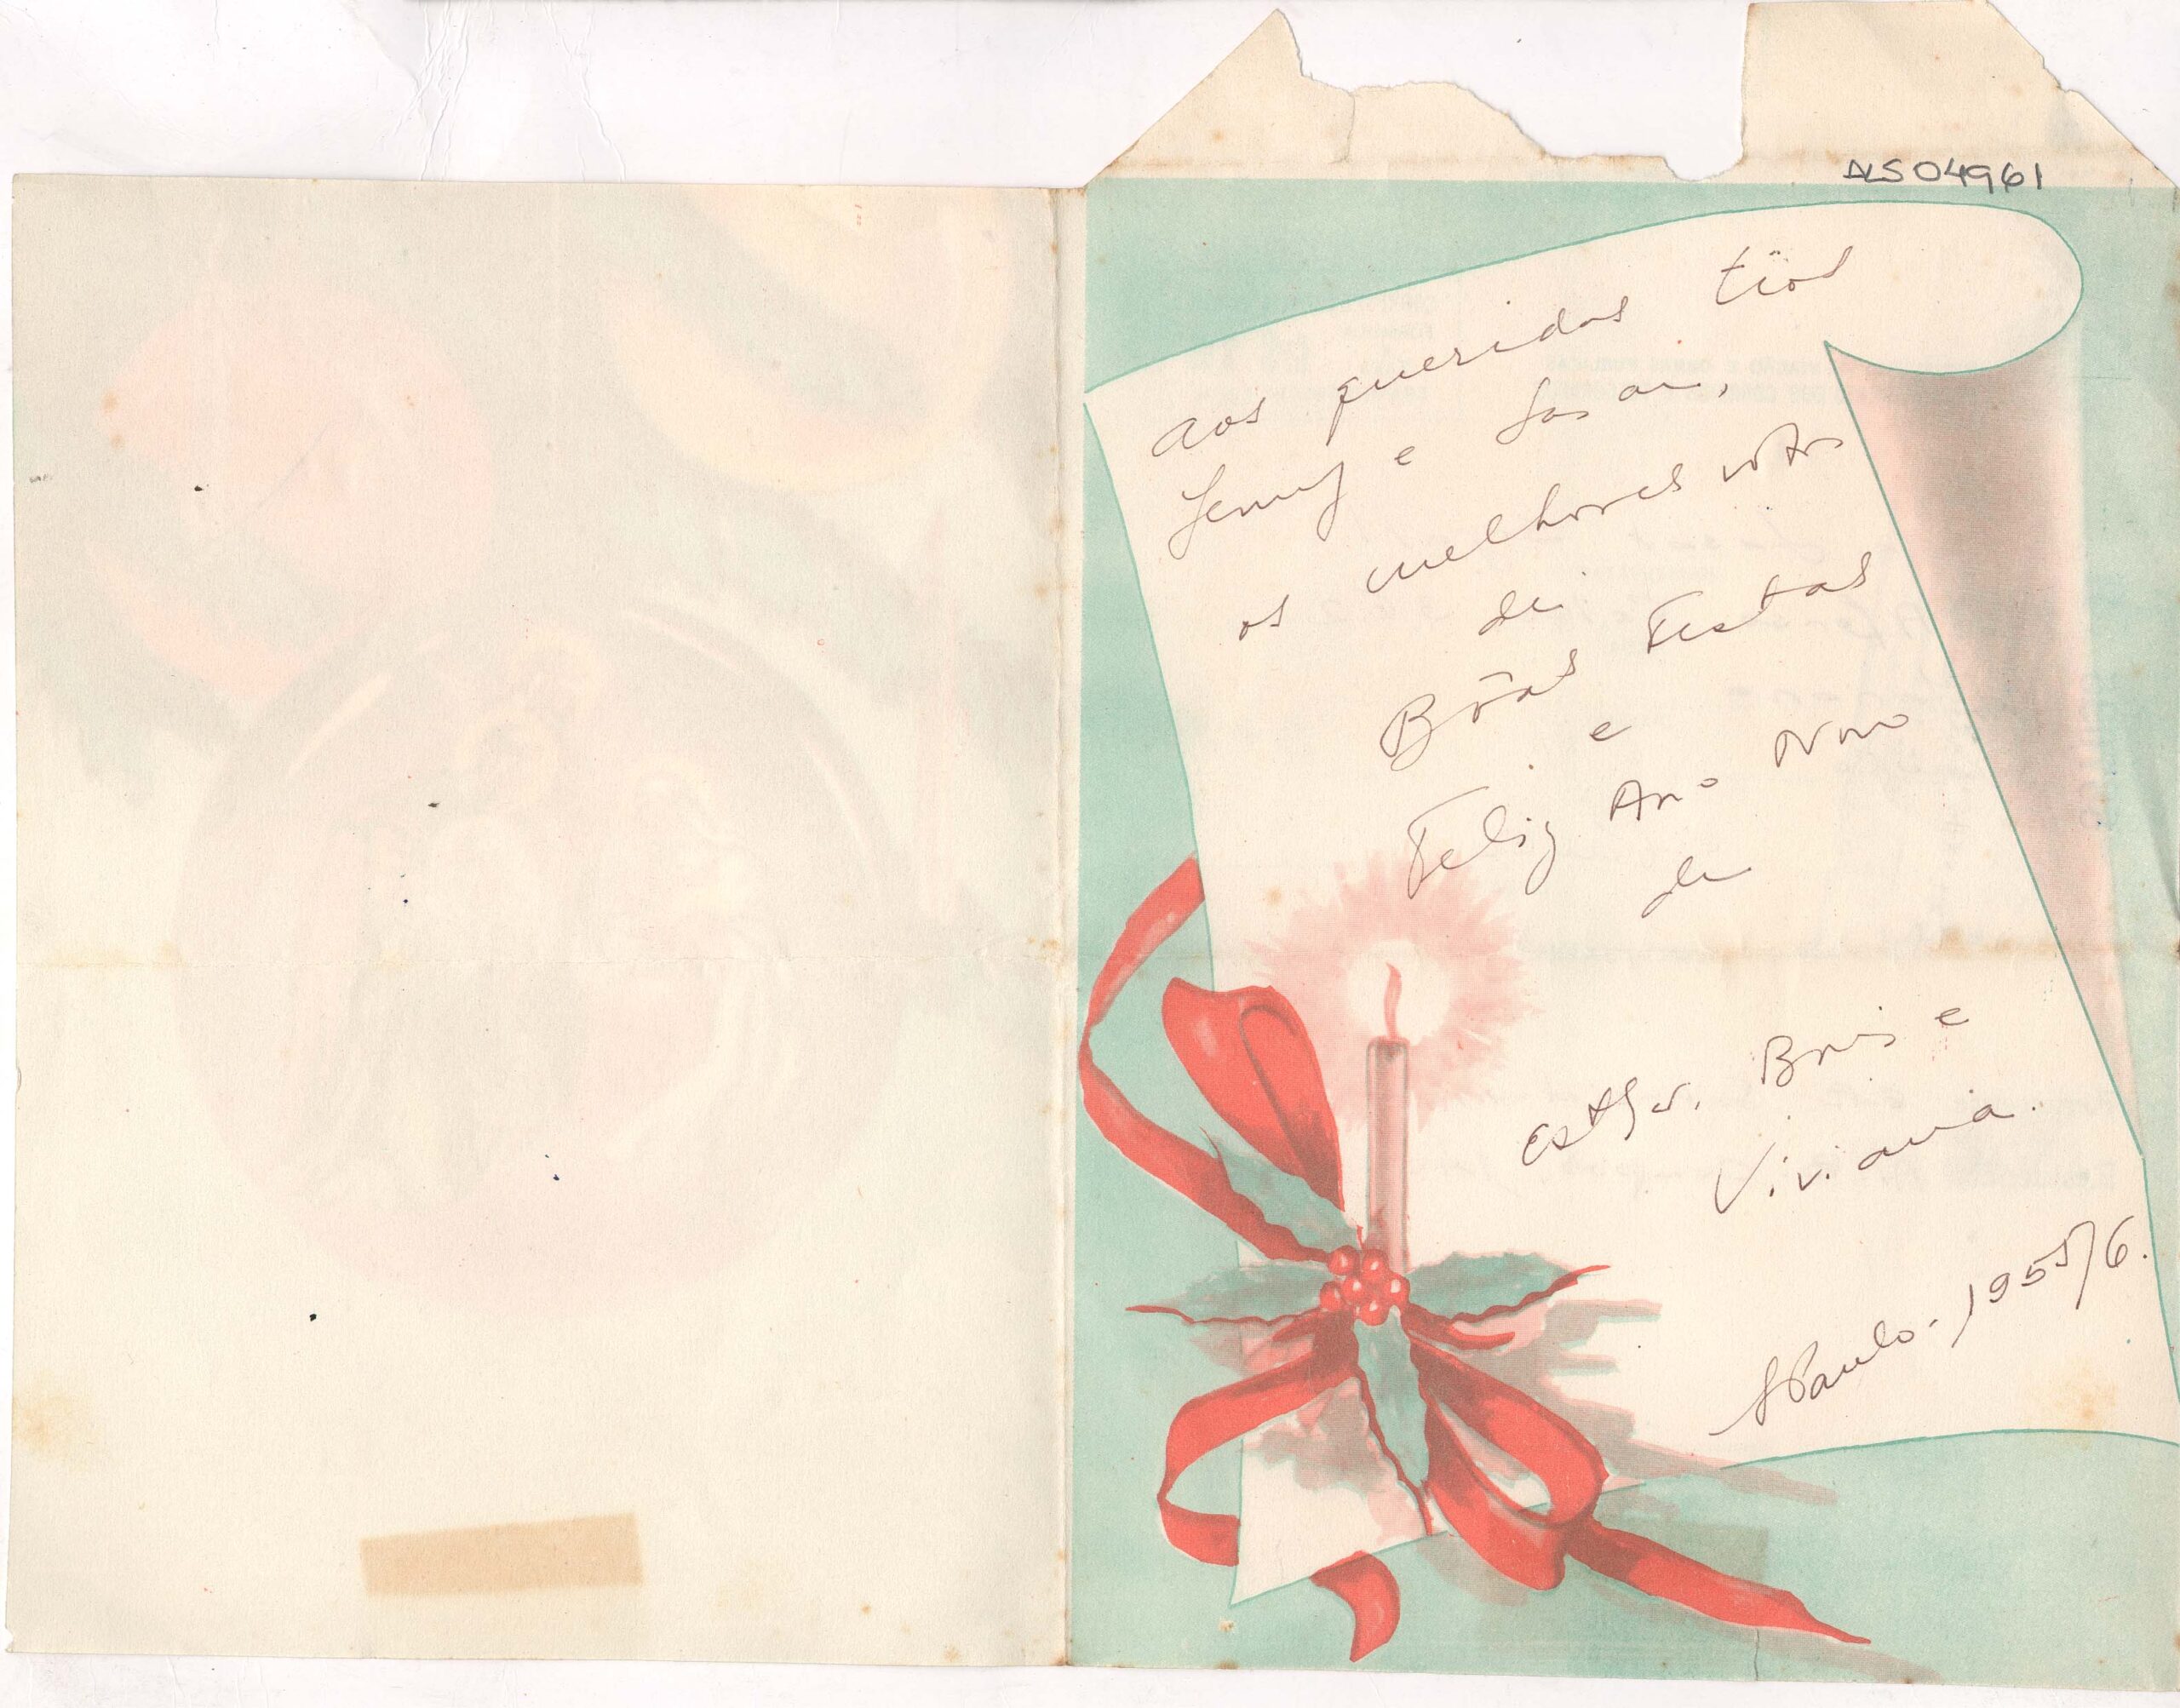 ALS04961
Aos queridos tios
Jenny e Lasar,
os melhores votos
de
Bôas Festas
e
Feliz Ano Novo
de
Esther, Boris e
Viviana.
SPaulo-1955/6.